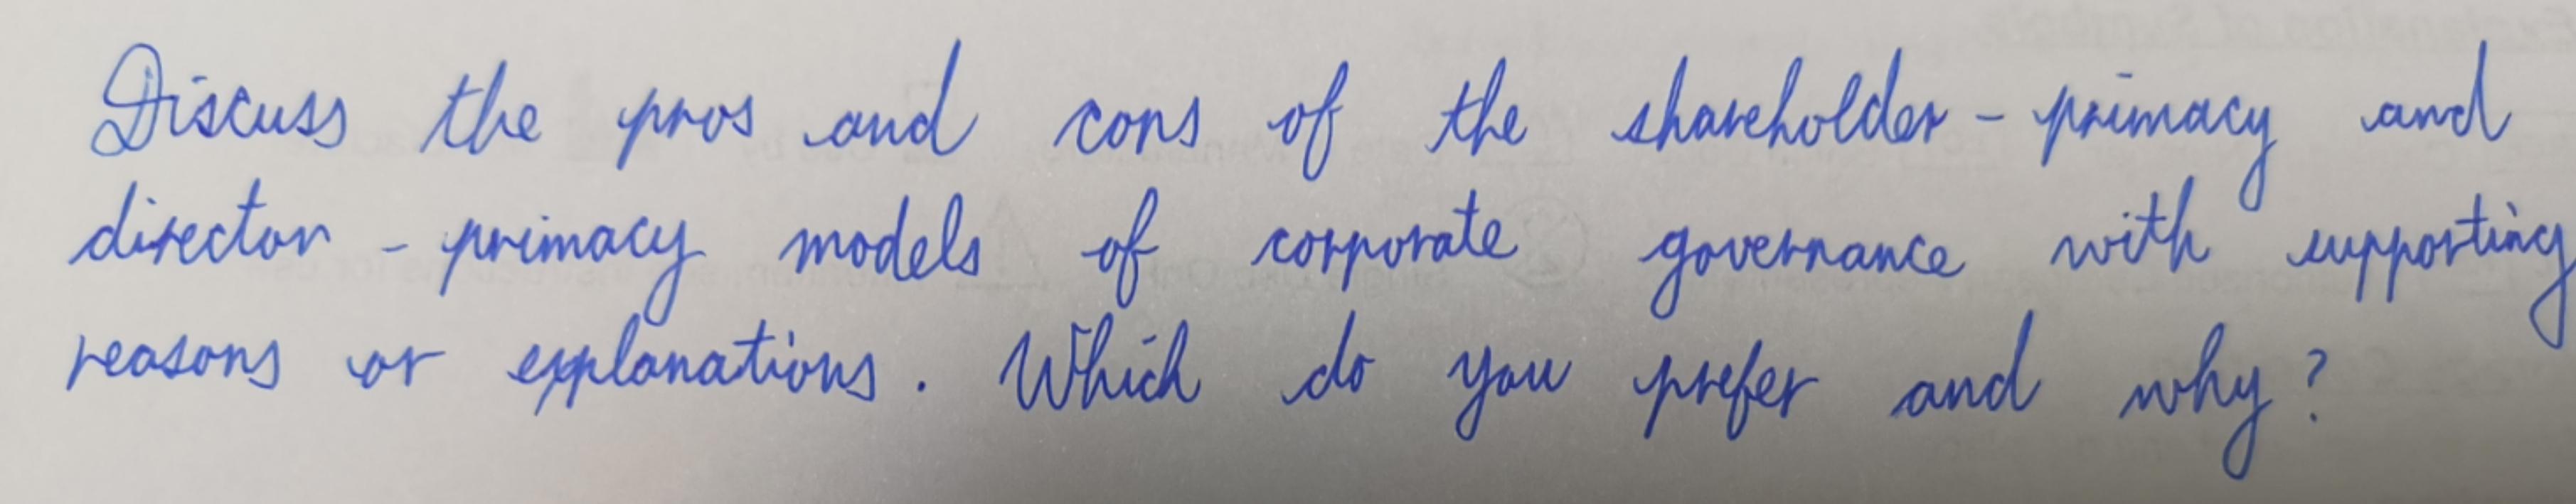 Discuss the pros and cons of the shareholder-primacy and
director-primacy models of corporate governance with supporting
reasons or explanations. Which do you prefer and why?